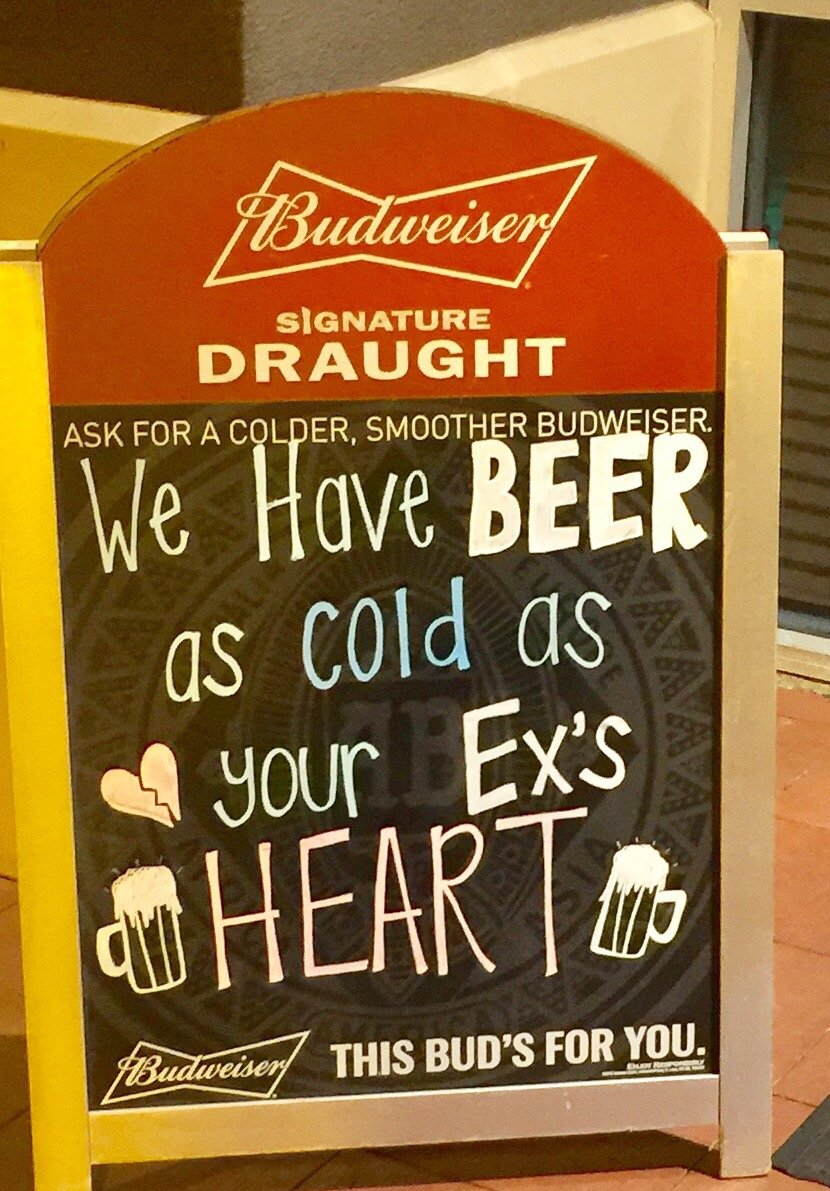 Budweiser
SIGNATURE
DRAUGHT
ASK FOR A COLDER, SMOOTHER BUDWEISER.
We Have BEER
as cold as
your Ex's
HEART
Budweiser THIS BUD'S FOR YOU.
ENJOY RESPONSIBLY